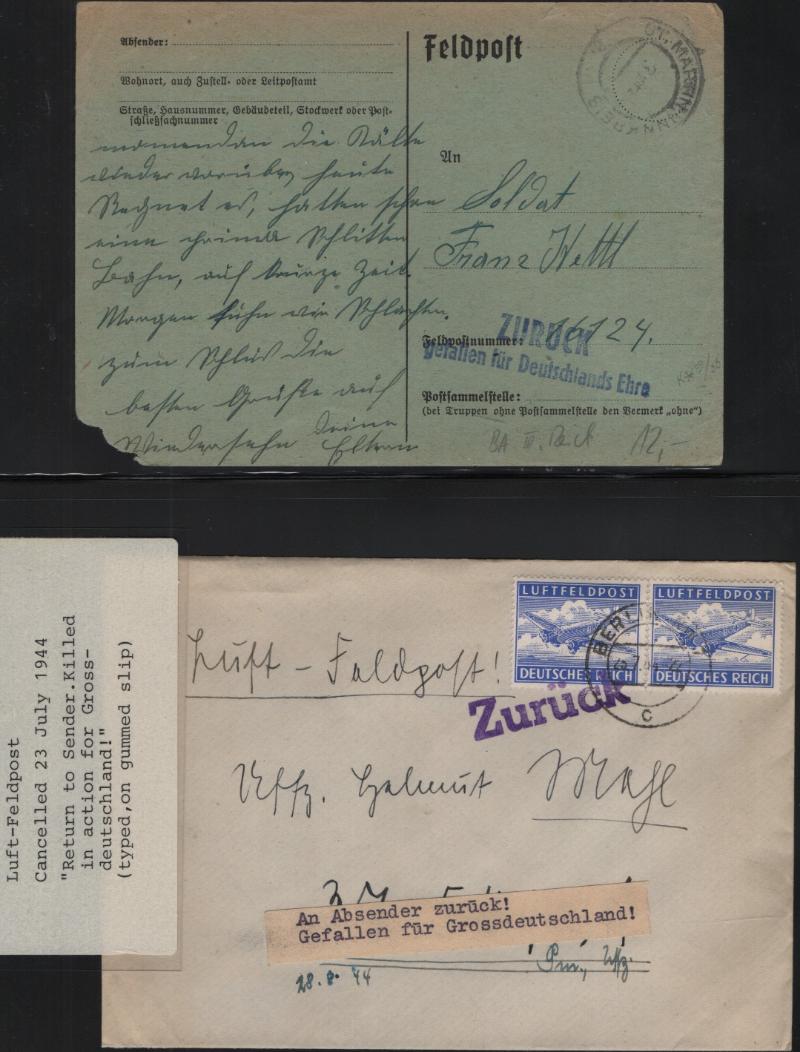 Absender:
Wohnort, auch Zustell- oder Leitpostamt
Straße, Hausnummer, Gebäudeteil, Stockwerk oder Post-
schließfachnummer
momendan die Kälte
wieder vorüber, heute
Regnet es, hatten schon
eine prima Schlitten
Bahn, auf kurze Zeit.
Morgen wir Schlachten.
zum Schluß die
besten Grüße auf
Wiedersehn Deine
Eltern
Feldpost
ST. MARTIN
An
Soldat
Franz
Feldpostnummer: 16124.
ZURÜCK
gefallen für Deutschlands Ehre
Poststammelstelle:
(bei Truppen ohne Postsammelstelle den Vermerk „ohne“)
BA III. Reich
12,-
Luft-Feldpost
Cancelled 23 July 1944
"Return to Sender.Killed
in action for Gross-
deutschland!"
(typed,on gummed slip)
LUFTFELDPOST
DEUTSCHES REICH
LUFTFELDPOST
DEUTSCHES REICH
BERLIN
c
Luft-Feldpost!
Zurück
Uffz. Helmut
An Absender zurück!
Gefallen für Grossdeutschland!
28.8.44
Uffz.